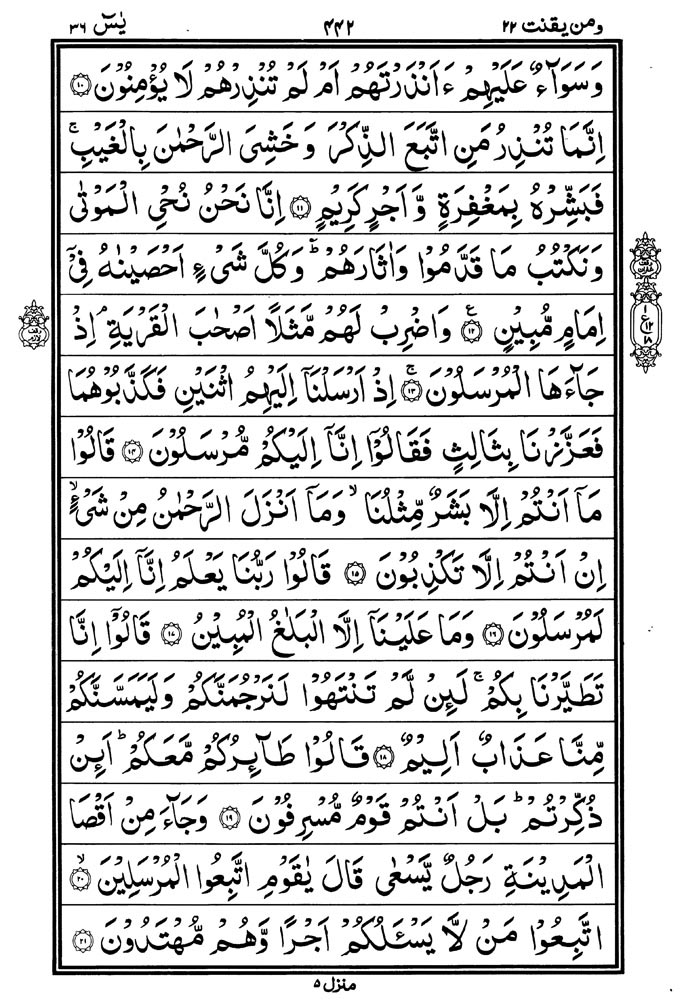 ومن یقنت ۲۲ ۴۴۲ یٰسٓ ۳۶
وَسَوَآءٌ عَلَیْهِمْ ءَاَنْذَرْتَهُمْ اَمْ لَمْ تُنْذِرْهُمْ لَا یُؤْمِنُوْنَ ﴿۱۰﴾
اِنَّمَا تُنْذِرُ مَنِ اتَّبَعَ الذِّكْرَ وَ خَشِیَ الرَّحْمٰنَ بِالْغَیْبِ ۚ
فَبَشِّرْهُ بِمَغْفِرَةٍ وَّ اَجْرٍ كَرِیْمٍ ﴿۱۱﴾ اِنَّا نَحْنُ نُحْیِ الْمَوْتٰی
وَ نَكْتُبُ مَا قَدَّمُوْا وَ اٰثَارَهُمْ ؕ وَ كُلَّ شَیْءٍ اَحْصَیْنٰهُ فِیْۤ
اِمَامٍ مُّبِیْنٍ ﴿۱۲﴾ ع وَ اضْرِبْ لَهُمْ مَّثَلًا اَصْحٰبَ الْقَرْیَةِ ۘ اِذْ
جَآءَهَا الْمُرْسَلُوْنَ ﴿۱۳﴾ ۚ اِذْ اَرْسَلْنَاۤ اِلَیْهِمُ اثْنَیْنِ فَكَذَّبُوْهُمَا
فَعَزَّزْنَا بِثَالِثٍ فَقَالُوْۤا اِنَّاۤ اِلَیْكُمْ مُّرْسَلُوْنَ ﴿۱۴﴾ قَالُوْا
مَاۤ اَنْتُمْ اِلَّا بَشَرٌ مِّثْلُنَا ۙ وَ مَاۤ اَنْزَلَ الرَّحْمٰنُ مِنْ شَیْءٍ ۙ
اِنْ اَنْتُمْ اِلَّا تَكْذِبُوْنَ ﴿۱۵﴾ قَالُوْا رَبُّنَا یَعْلَمُ اِنَّاۤ اِلَیْكُمْ
لَمُرْسَلُوْنَ ﴿۱۶﴾ وَ مَا عَلَیْنَاۤ اِلَّا الْبَلٰغُ الْمُبِیْنُ ﴿۱۷﴾ قَالُوْۤا اِنَّا
تَطَیَّرْنَا بِكُمْ ۚ لَئِنْ لَّمْ تَنْتَهُوْا لَنَرْجُمَنَّكُمْ وَ لَیَمَسَّنَّكُمْ
مِّنَّا عَذَابٌ اَلِیْمٌ ﴿۱۸﴾ قَالُوْا طَآئِرُكُمْ مَّعَكُمْ ؕ اَئِنْ
ذُكِّرْتُمْ ؕ بَلْ اَنْتُمْ قَوْمٌ مُّسْرِفُوْنَ ﴿۱۹﴾ وَ جَآءَ مِنْ اَقْصَا
الْمَدِیْنَةِ رَجُلٌ یَّسْعٰی قَالَ یٰقَوْمِ اتَّبِعُوا الْمُرْسَلِیْنَ ﴿۲۰﴾ ۙ
اتَّبِعُوْا مَنْ لَّا یَسْـَٔلُكُمْ اَجْرًا وَّ هُمْ مُّهْتَدُوْنَ ﴿۲۱﴾
وقف غفران
۱ ع ۱۲ ۱۸
وقف لازم
منزل ۵